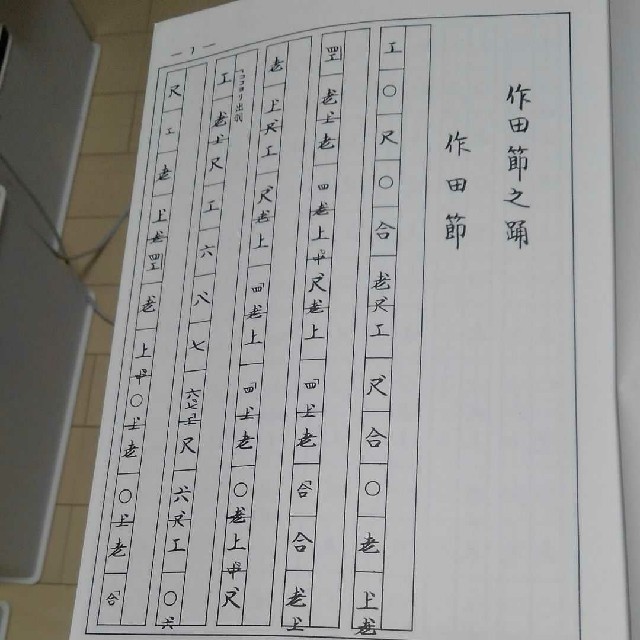 作田節之踊
作田節
工○尺○合老尺工尺合○老上老
四老上老四老上中尺老上四上老合合老上
老上尺工尺老上四老上四上老○老上中尺
工老上尺工六八七六七上尺六尺工○六
尺工老上老四老上中○上老○上老合
ココヨリ出羽
一1一